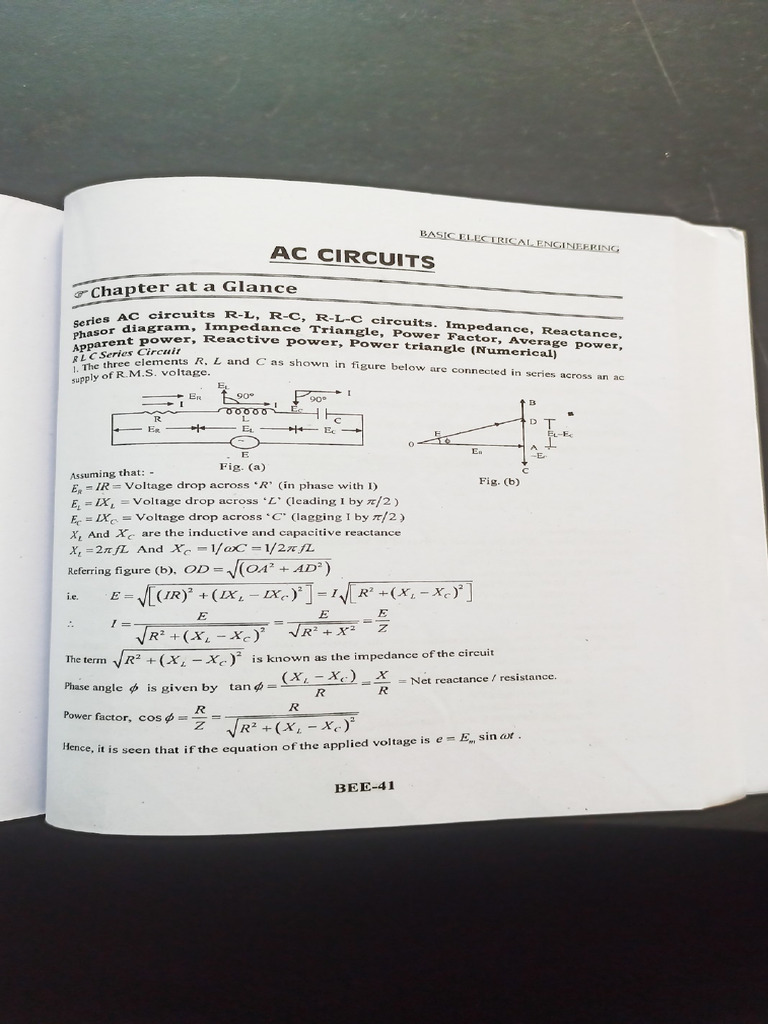 BASIC ELECTRICAL ENGINEERING
AC CIRCUITS
☞Chapter at a Glance
Series AC circuits R-L, R-C, R-L-C circuits. Impedance, Reactance,
Phasor diagram, Impedance Triangle, Power Factor, Average power,
Apparent power, Reactive power, Power triangle (Numerical)
R L C Series Circuit
1. The three elements R, L and C as shown in figure below are connected in series across an ac
supply of R.M.S. voltage.
E_R I R E_R
E_L 90° I L E_L
90° I E_C C E_C
E
Fig. (a)
B D A C O E ϕ E_R E_L–E_C –E_C
Fig. (b)
Assuming that: -
E_R = IR = Voltage drop across 'R' (in phase with I)
E_L = IX_L = Voltage drop across 'L' (leading I by π/2 )
E_C = IX_C = Voltage drop across 'C' (lagging I by π/2 )
X_L And X_C are the inductive and capacitive reactance
X_L = 2πfL And X_C = 1/ωC = 1/2πfL
Referring figure (b), OD = √(OA² + AD²)
i.e. E = √[(IR)² + (IX_L − IX_C)²] = I√[R² + (X_L − X_C)²]
∴ I = E/√(R² + (X_L − X_C)²) = E/√(R² + X²) = E/Z
The term √(R² + (X_L − X_C)²) is known as the impedance of the circuit
Phase angle ϕ is given by tan ϕ = (X_L − X_C)/R = X/R = Net reactance / resistance.
Power factor, cos ϕ = R/Z = R/√(R² + (X_L − X_C)²)
Hence, it is seen that if the equation of the applied voltage is e = E_m sin ωt .
BEE-41